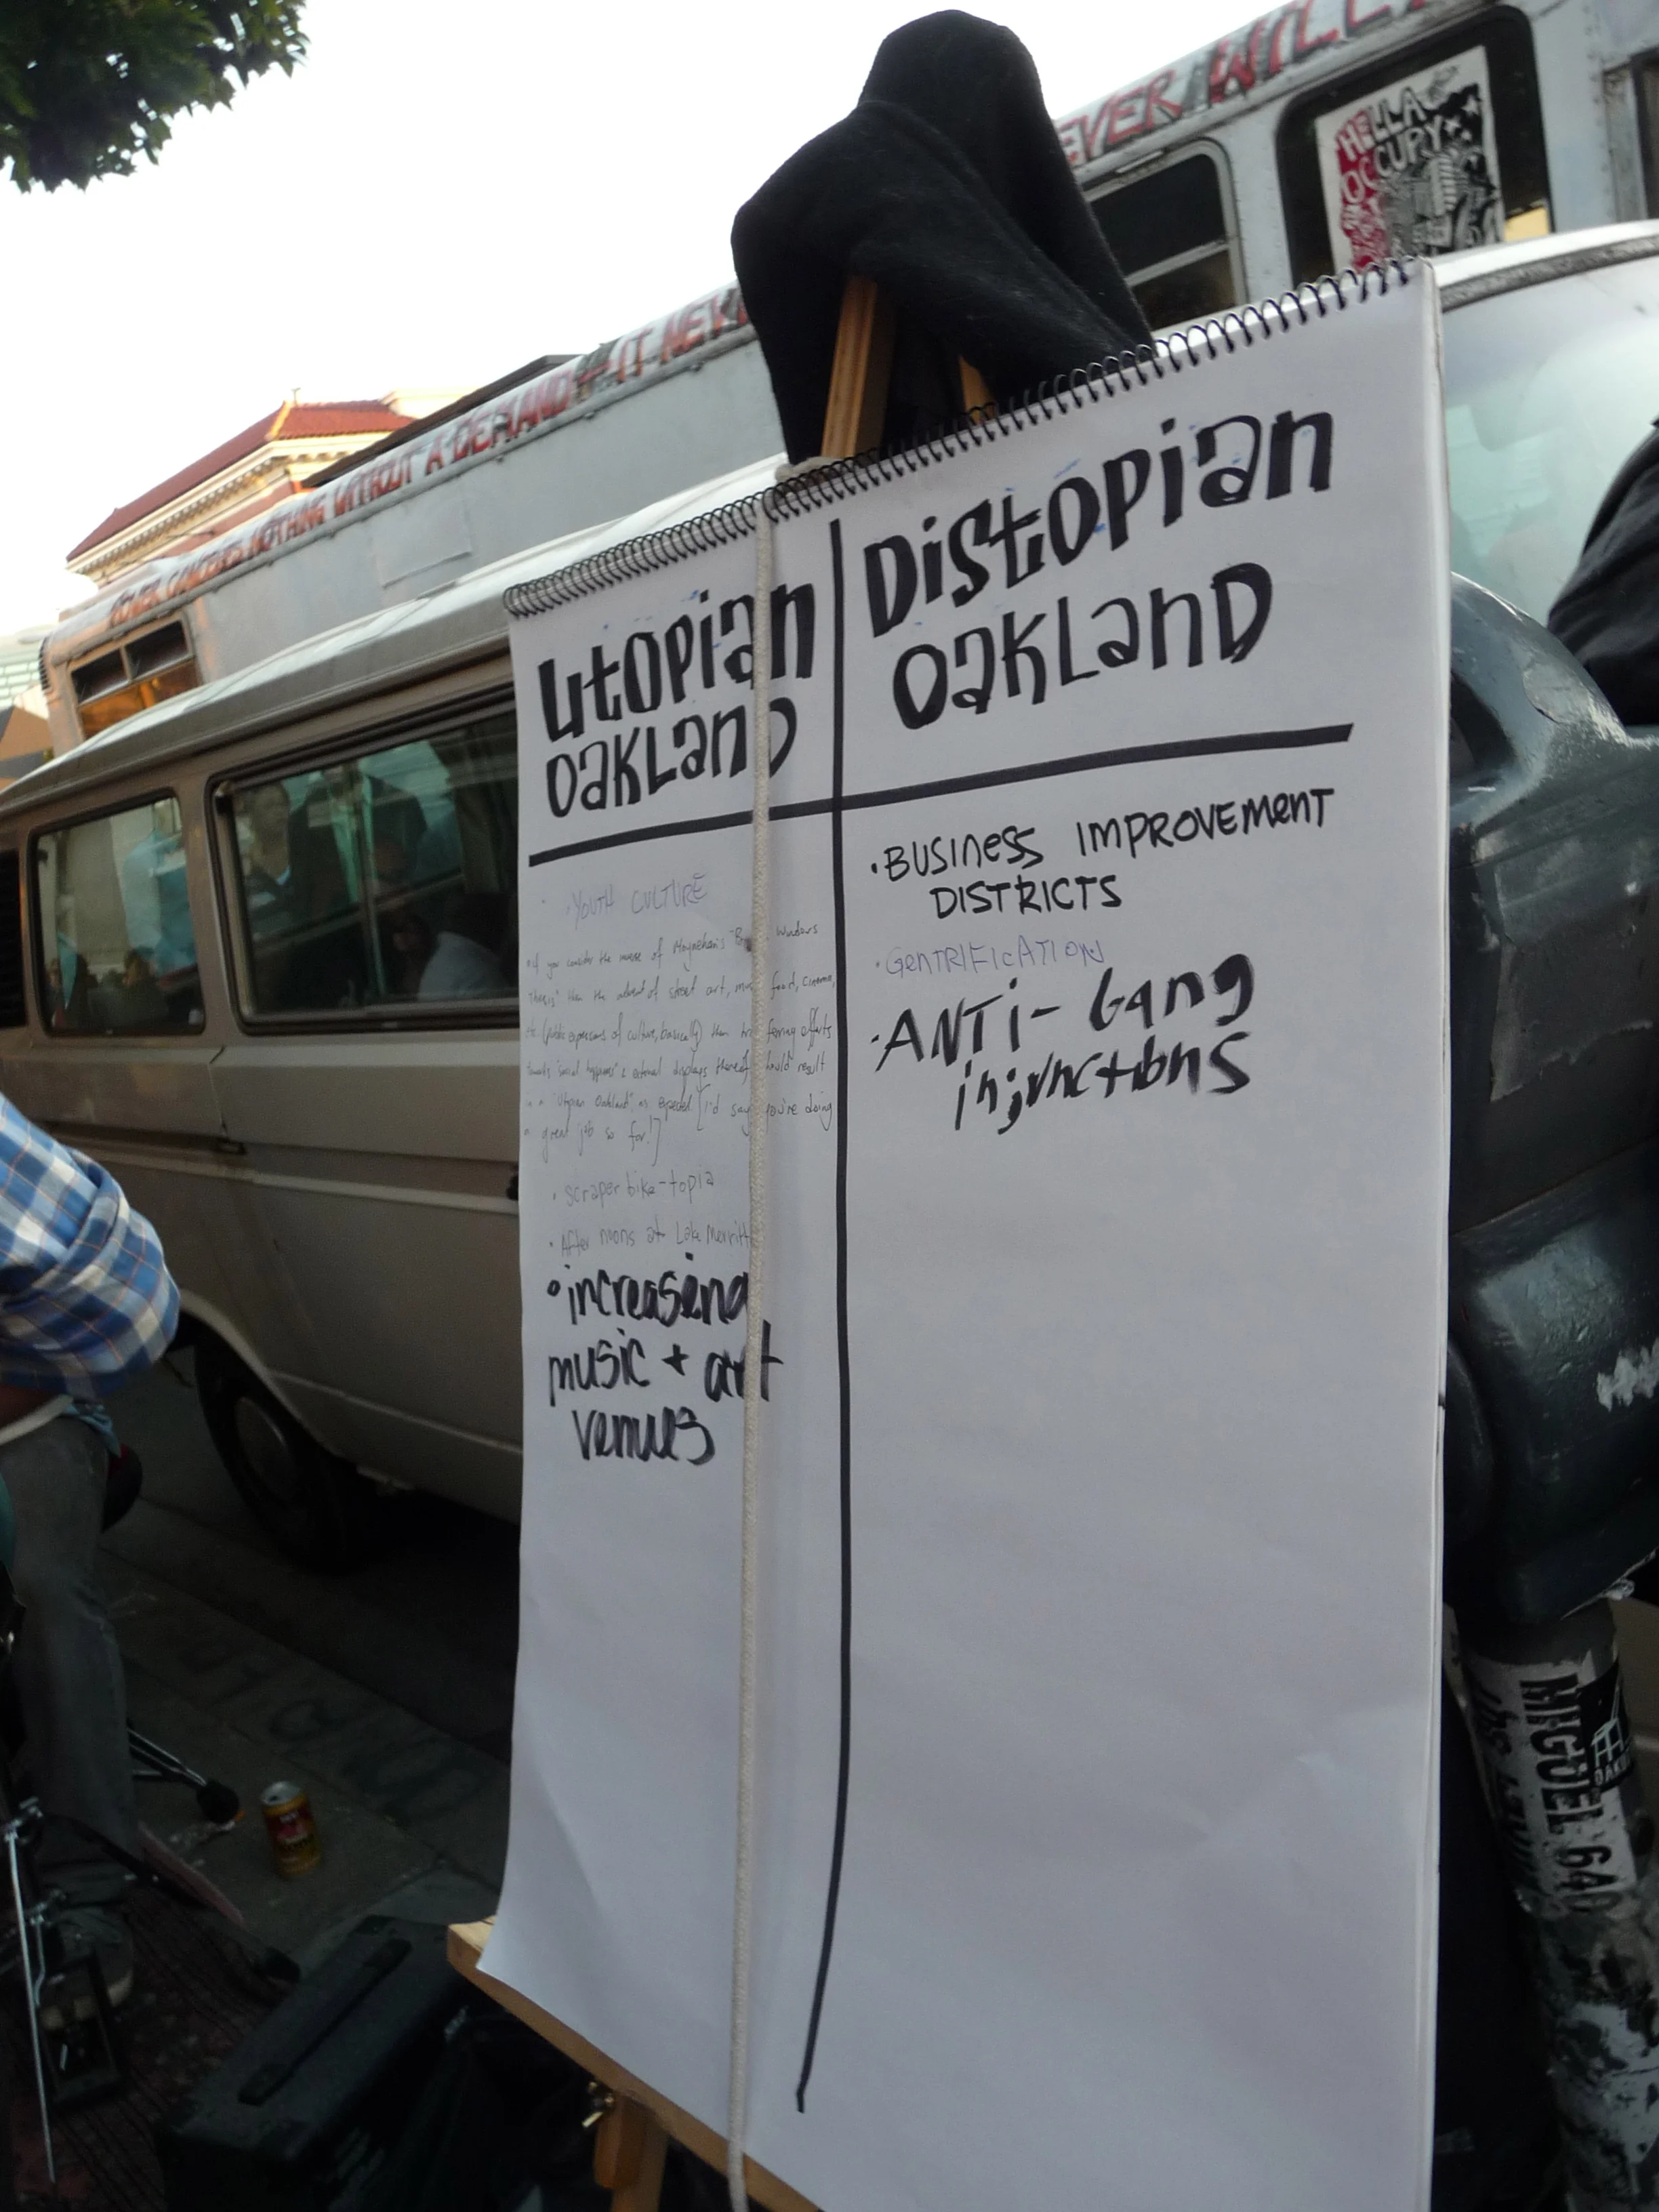 EVER WILL
HELLA
OCCUPY
POWER CONCEDES NOTHING WITHOUT A DEMAND IT NEV
Utopian
Oakland
Distopian
Oakland
• YOUTH CULTURE
• if you consider the inverse of Moynehan's "B Windows
Thesis" then the advent of street art, mus food, cinema,
etc (public expressions of culture, basically) then offerts
towards "social happiness" & external displays thereof should result
in a "Utopian Oakland" as expected [I'd say you're doing
a great job so far!]
• scraper bike-topia
• After noons at Lake Merritt
• increaseing
music + art
venues
• BUSINESS IMPROVEMENT
DISTRICTS
• GENTRIFICATION
• ANTi- Gang
injunctions
MIGUEL GAO